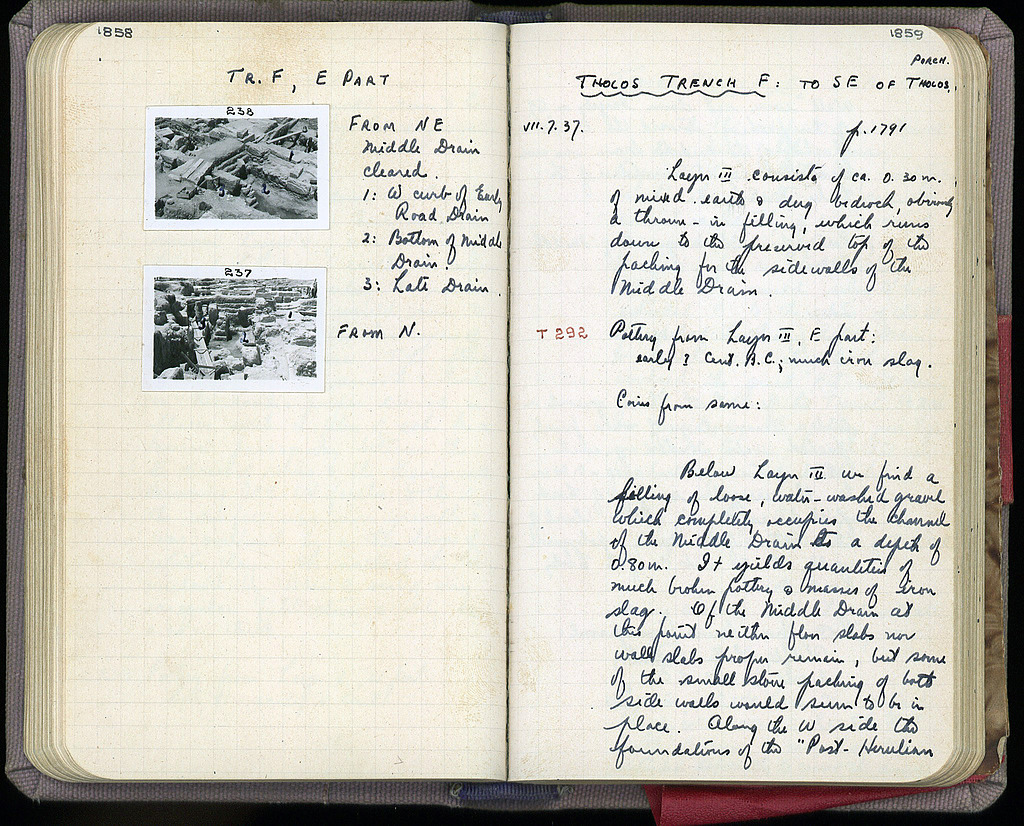 1858
TR. F, E PART
238
FROM NE
Middle Drain
cleared.
1: W curb of Early
Road Drain
2: Bottom of Middle
Drain.
3: Late Drain.
237
FROM N.
1859
PORCH.
THOLOS TRENCH F: TO SE OF THOLOS.
VII.7.37.
p. 1791
Layer III consists of ca. 0.30 m.
of mixed earth & dug bedrock, obviously
a thrown-in filling, which runs
down to the preserved top of the
packing for the sidewalls of the
Middle Drain.
T 292
Pottery from Layer III, E part:
early 3 Cent. B.C.; much iron slag.
Coins from same:
Below Layer III we find a
filling of loose, water-washed gravel
which completely occupies the channel
of the Middle Drain to a depth of
0.80m. It yields quantities of
much broken pottery & masses of iron
slag. Of the Middle Drain at
this point neither floor slabs nor
wall slabs proper remain, but some
of the small stone packing of both
side walls would seem to be in
place. Along the W side the
foundations of the "Post-Herulian